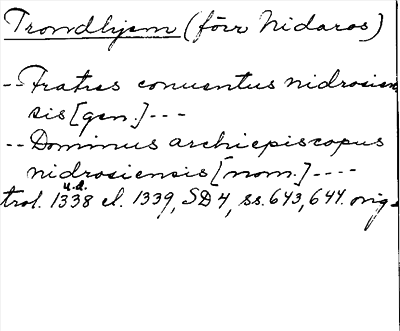 Trondhjem (förr Nidaros)
-- Fratres conuentus nidrosien
sis [gen.] ---
-- Dominus archiepiscopus
nidrosiensis [nom.] ----
u.d.
trol. 1338 el. 1339, SD 4, ss. 643, 644. orig.